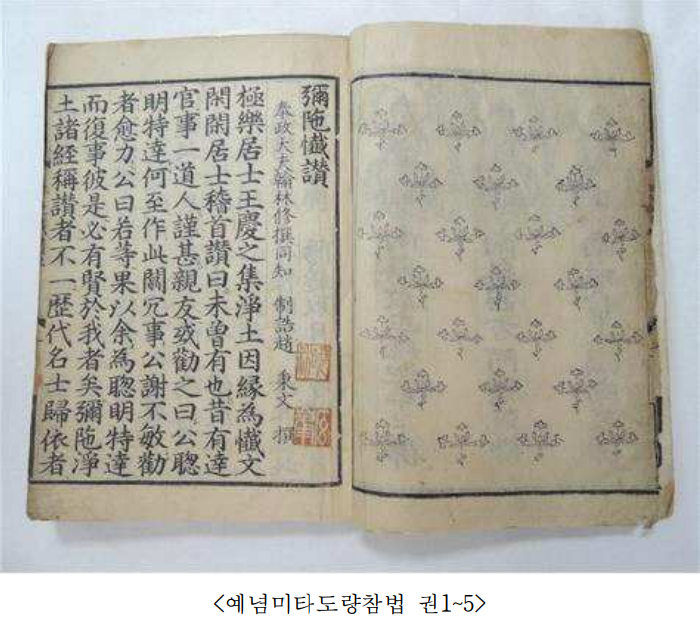 彌陁懺讃
奉政大夫翰林修撰同知 制誥趙 秉文 撰
極樂居士王慶之集淨土因縁為懺文
閑閑居士稽首讃曰未曽有也昔有達
官事一道人謹甚親友或勸之曰公聦
明特達何至作此闒冗事公謝不敏勸
者愈力公曰若等果以余為聦明特達
而復事彼是必有賢於我者矣彌陁淨
土諸經稱讃者不一歴代名士歸依者
<예념미타도량참법 권1~5>